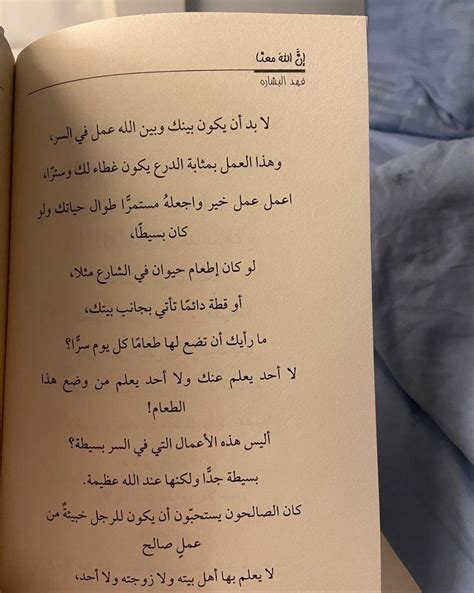 إنَّ اللهَ معنا
فهد البشاره
لا بد أن يكون بينك وبين الله عمل في السر،
وهذا العمل بمثابة الدرع يكون غطاء لك وسترًا،
اعمل عمل خير واجعلهُ مستمرًّا طوال حياتك ولو
كان بسيطًا،
لو كان إطعام حيوان في الشارع مثلا،
أو قطة دائمًا تأتي بجانب بيتك،
ما رأيك أن تضع لها طعامًا كل يوم سرًّا؟
لا أحد يعلم عنك ولا أحد يعلم من وضع هذا
الطعام!
أليس هذه الأعمال التي في السر بسيطة؟
بسيطة جدًّا ولكنها عند الله عظيمة.
كان الصالحون يستحبّون أن يكون للرجل خبيئةٌ من
عملٍ صالح
لا يعلم بها أهل بيته ولا زوجته ولا أحد،